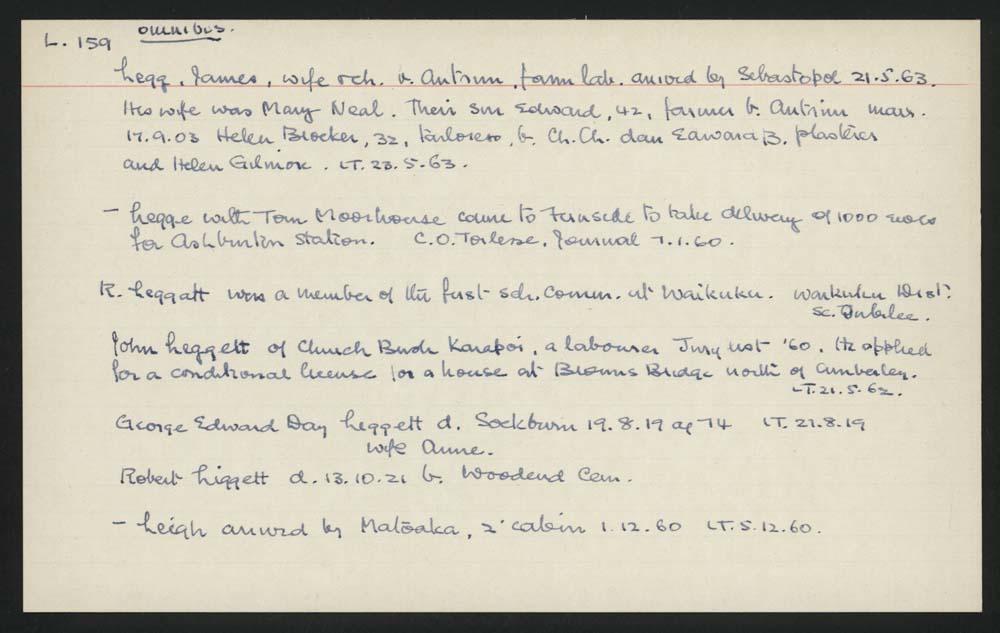 L. 159 omnibus.
Legg, James, wife + ch. b. Antrim, farm lab. arrived by Sebastopol 21.5.63.
His wife was Mary Neal. Their son Edward, 42, farmer b. Antrim marr.
17.9.03 Helen Brocker, 32, tailoress, b. Ch.Ch. dau Edward B, plasterer
and Helen Gilmore. LT. 23.5.63.
- Legge with Tom Moorhouse came to Fernside to take delivery of 1000 ewes
for Ashburton station. C.O. Torlesse, Journal 7.1.60.
R. Leggatt was a member of the first sch. comm. at Waikuku. Waikuku Dist.
Sc. Jubilee.
John Leggett of Church Bush Kaiapoi, a labourer Jury List '60. He applied
for a conditional license for a house at Browns Bridge north of Amberley.
LT. 21.5.62.
George Edward Day Leggett d. Sockburn 19.8.19 ag 74 LT. 21.8.19
wife Anne.
Robert Liggett d. 13.10.21 b. Woodend Cem.
- Leigh arrived by Matoaka, 2' cabin 1.12.60 LT. 5.12.60.